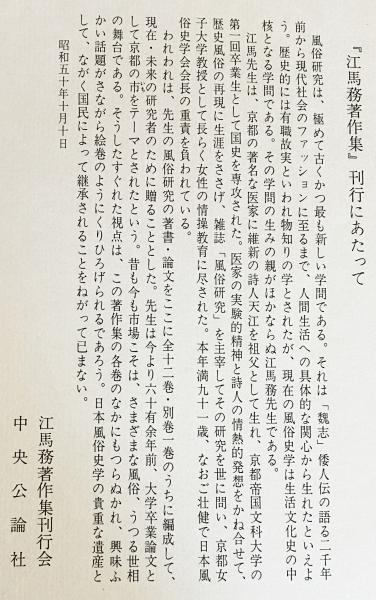 『江馬務著作集』刊行にあたって
風俗研究は、極めて古くかつ最も新しい学問である。それは「魏志」倭人伝の語る二千年
前から現代社会のファッションに至るまで、人間生活への具体的な関心から生れたといえよ
う。歴史的には有職故実といわれ物知りの学とされたが、現在の風俗史学は生活文化史の中
核となる学問である。その学問の生みの親がほかならぬ江馬務先生である。
江馬先生は、京都の著名な医家に維新の詩人天江を祖父として生れ、京都帝国文科大学の
第一回卒業生として国史を専攻された。医家の実験的精神と詩人の情熱的発想をかね合せて、
歴史風俗の再現に生涯をささげ、雑誌「風俗研究」を主宰してその研究を世に問い、京都女
子大学教授として長らく女性の情操教育に尽された。本年満九十一歳、なおご壮健で日本風
俗史学会会長の重責を負われている。
われわれは、先生の風俗研究の著書・論文をここに全十二巻・別巻一巻のうちに編成して、
現在・未来の研究者のために贈ることとした。先生は今より六十有余年前、大学卒業論文と
して京都の市をテーマとされたという。昔も今も市場こそは、さまざまな風俗、うつる世相
の舞台である。そうしたすぐれた視点は、この著作集の各巻のなかにもつらぬかれ、興味ふ
かい話題がさながら絵巻のようにくりひろげられるであろう。日本風俗史学の貴重な遺産と
して、ながく国民によって継承されることをねがって已まない。
昭和五十年十月十日
江馬務著作集刊行会
中央公論社